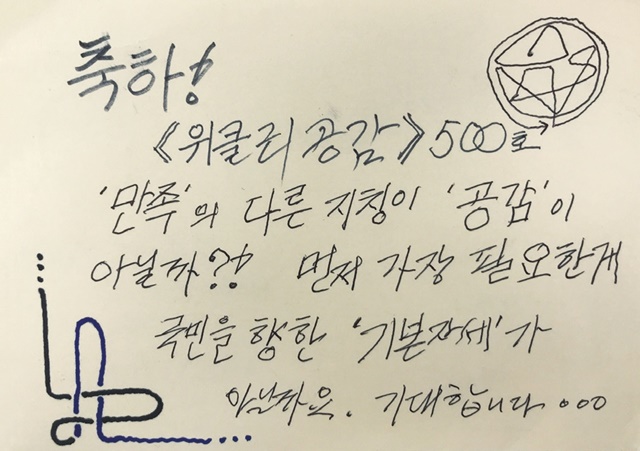 축하!
《위클리 공감》 500호
'만족'의 다른 지칭이 '공감'이
아닐까?! 먼저 가장 필요한게
국민을 향한 '기본자세'가
아닐까요. 기대합니다...